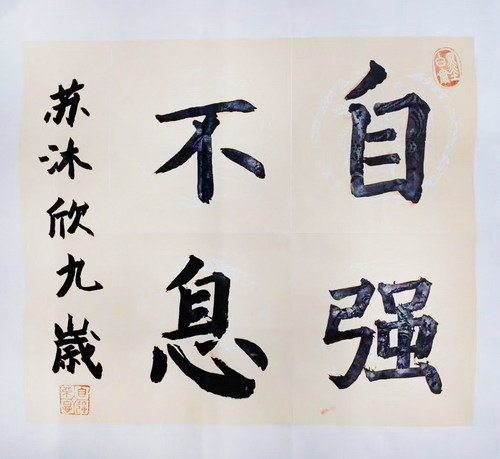 自强
不息
苏沐欣九歳